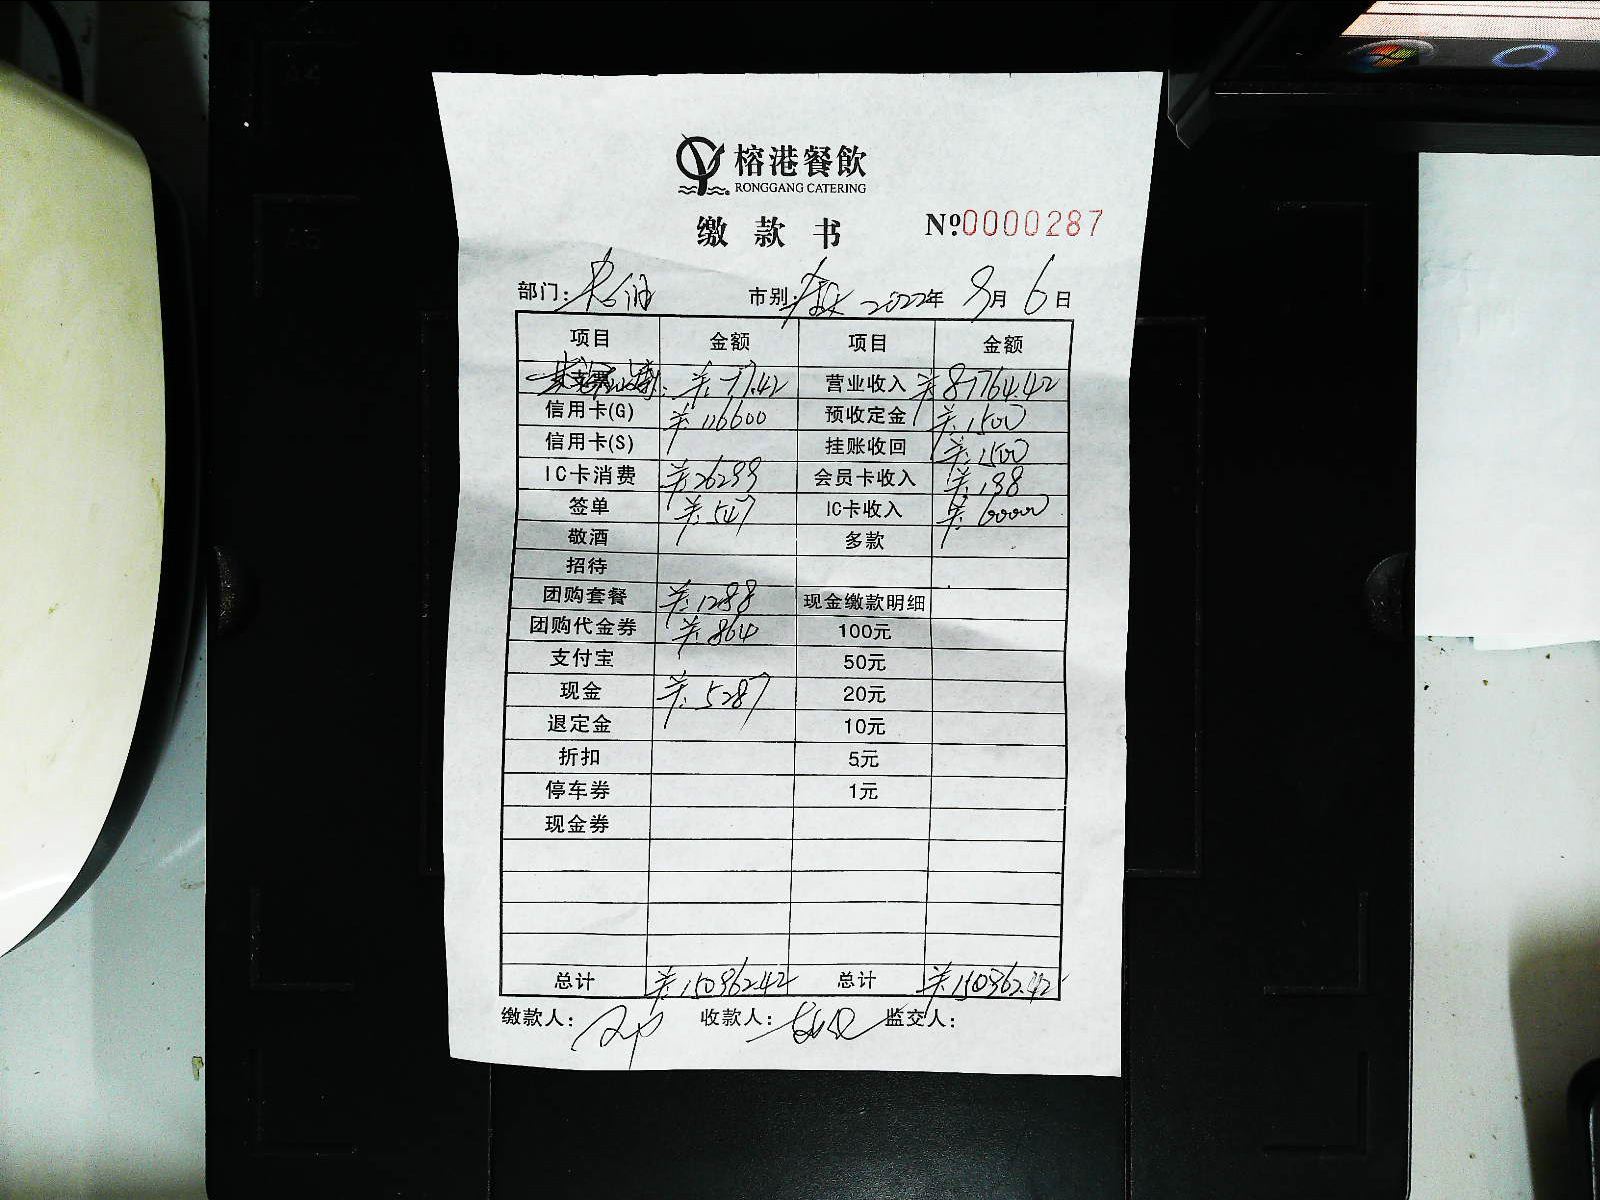 榕港餐飲
RONGGANG CATERING
缴款书 №:0000287
部门: 市别: 2022年 9月6日
项目 金额 项目 金额
支票 ¥:77.42 营业收入 ¥87764.42
信用卡(G) ¥:116600 预收定金 ¥:1500
信用卡(S) 挂账收回 ¥:1500
IC卡消费 ¥:26299 会员卡收入 ¥:198
签单 ¥:547 IC卡收入 ¥:60000
敬酒 多款
招待
团购套餐 ¥:1288 现金缴款明细
团购代金券 ¥:864 100元
支付宝 50元
现金 ¥:5287 20元
退定金 10元
折扣 5元
停车券 1元
现金券
总计 ¥:150962.42 总计 ¥:150962.42
缴款人: 收款人: 监交人: